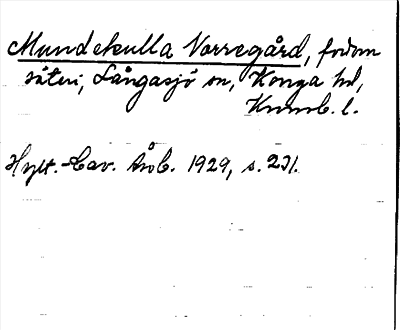 Mundekulla Norregård, fordom
säteri, Långasjö sn, Konga hd,
Kronob. l.
Hylt.-Cav. årsb. 1929, s. 231.